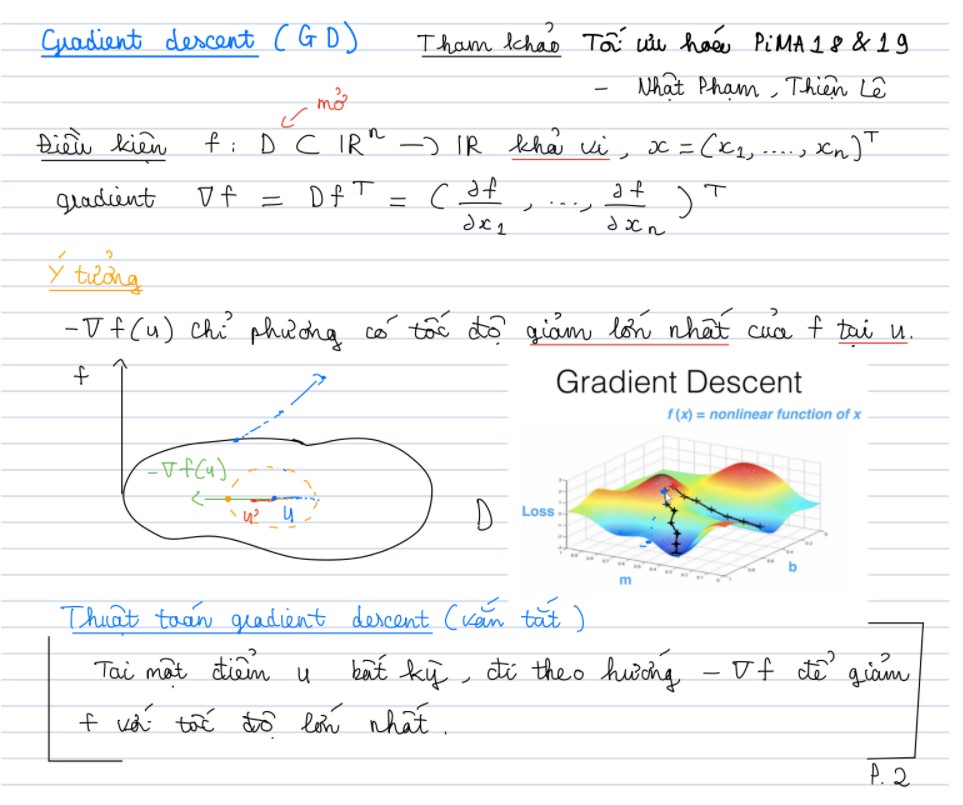 Gradient descent (GD) Tham khảo Tối ưu hoá PiMA18 & 19
- Nhật Phạm, Thiên Lê
mở
Điều kiện f: D ⊂ ℝⁿ → ℝ khả vi, x = (x₁, ...., xₙ)ᵀ
gradient ∇f = Dfᵀ = (∂f/∂x₁, ..., ∂f/∂xₙ)ᵀ
Ý tưởng
-∇f(u) chỉ phương có tốc độ giảm lớn nhất của f tại u.
f
Gradient Descent
f(x) = nonlinear function of x
-∇f(u)
u' u
D
Loss
m
b
Thuật toán gradient descent (vắn tắt)
Tại một điểm u bất kỳ, đi theo hướng -∇f để giảm
f với tốc độ lớn nhất.
P. 2